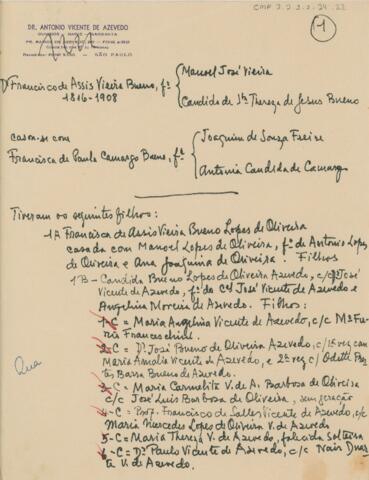 CMP 2.2.2.2-24.22
DR. ANTONIO VICENTE DE AZEVEDO
SÃO PAULO
1
Dr Francisco de Assis Vieira Bueno, fº
1816-1908
Manoel José Vieira
Candida de Sta Thereza de Jesus Bueno
casou-se com
Francisca de Paula Camargo Bueno, fª
Joaquim de Souza Freire
Antonia Candida de Camargo
Tiveram os seguintes filhos:
1A Francisca de Assis Vieira Bueno Lopes de Oliveira
casada com Manoel Lopes de Oliveira, fº de Antonio Lopes
de Oliveira e Ana Joaquina de Oliveira - Filhos
1B - Candida Bueno Lopes de Oliveira Azevedo, c/c José
Vicente de Azevedo, fº do Cel José Vicente de Azevedo e
Angelina Moreira de Azevedo. Filhos:
1-C = Maria Angelina Vicente de Azevedo, c/c
Franceschini.
2-C = Dr José Bueno de Oliveira Azevedo, c/c 1ª vez com
Maria Amalia Vicente de Azevedo, e 2ª vez c/ Odette
Barra Bueno de Azevedo.
3-C = Maria Carmelita V. de A. Barbosa de Oliveira
c/c José Luis Barbosa de Oliveira, sem geração
4-C = Prof. Francisco de Salles Vicente de Azevedo, c/c
Maria Mercedes Lopes de Oliveira V. de Azevedo
5-C = Maria Thereza V. de Azevedo, falecida solteira
6-C = Dr Paulo Vicente de Azevedo, c/c Nair Duar
te V. de Azevedo.